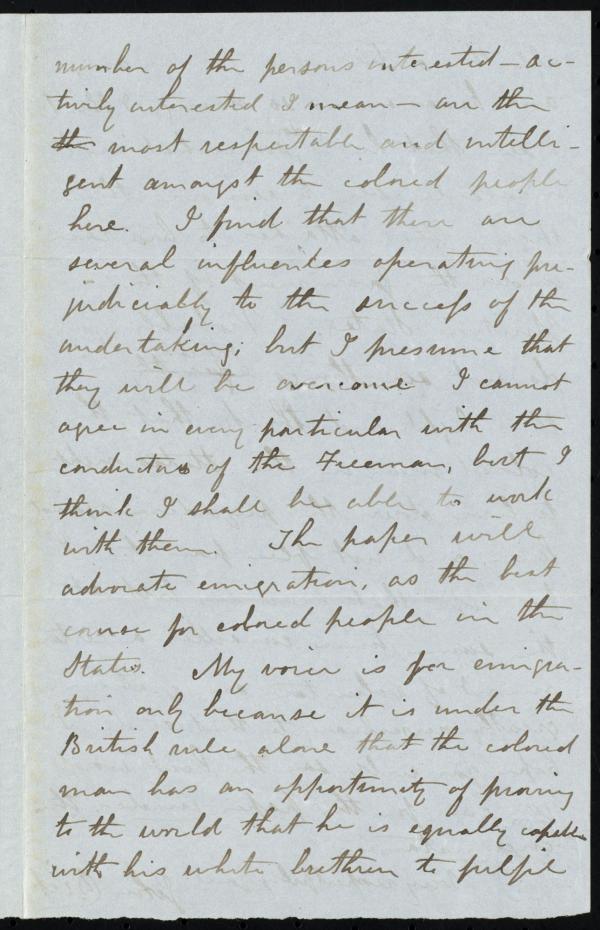 number of the persons interested — ac-
tively interested I mean — are the
the most respectable and intelli-
gent amongst the colored people
here. I find that there are
several influences operating pre-
judicially to the success of the
undertaking; but I presume that
they will be overcome. I cannot
agree in every particular with the
conductors of the Freeman, but I
think I shall be able to work
with them. The paper will
advocate emigration, as the best
course for colored people in the
States. My voice is for emigra-
tion only because it is under the
British rule alone that the colored
man has an opportunity of proving
to the world that he is equally capable
with his white brethren to fulfil